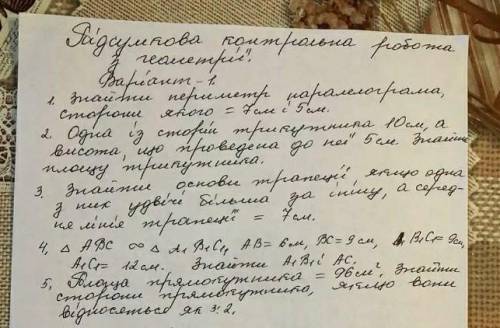 Підсумкова контрольна робота
з геометрії".
Варіант-1.
1. Знайти периметр паралелограма,
сторони якого = 7см і 5см.
2. Одна із сторін трикутника 10см, а
висота, що проведена до неї 5см. Знайти
площу трикутника.
3. Знайти основи трапеції, якщо одна
з них удвічі більша за іншу, а серед-
ня лінія трапеції = 7см.
4. △ ABC ∞ △ A₁B₁C₁, AB = 6см, BC = 9см, B₁C₁ = 9см,
A₁C₁ = 12см. Знайти A₁B₁ і AC.
5. Площа прямокутника = 96см². Знайти
сторони прямокутника, якщо вони
відносяться як 3:2.